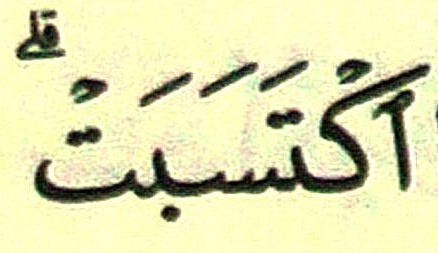 ٱكْتَسَبَتْ ۗ